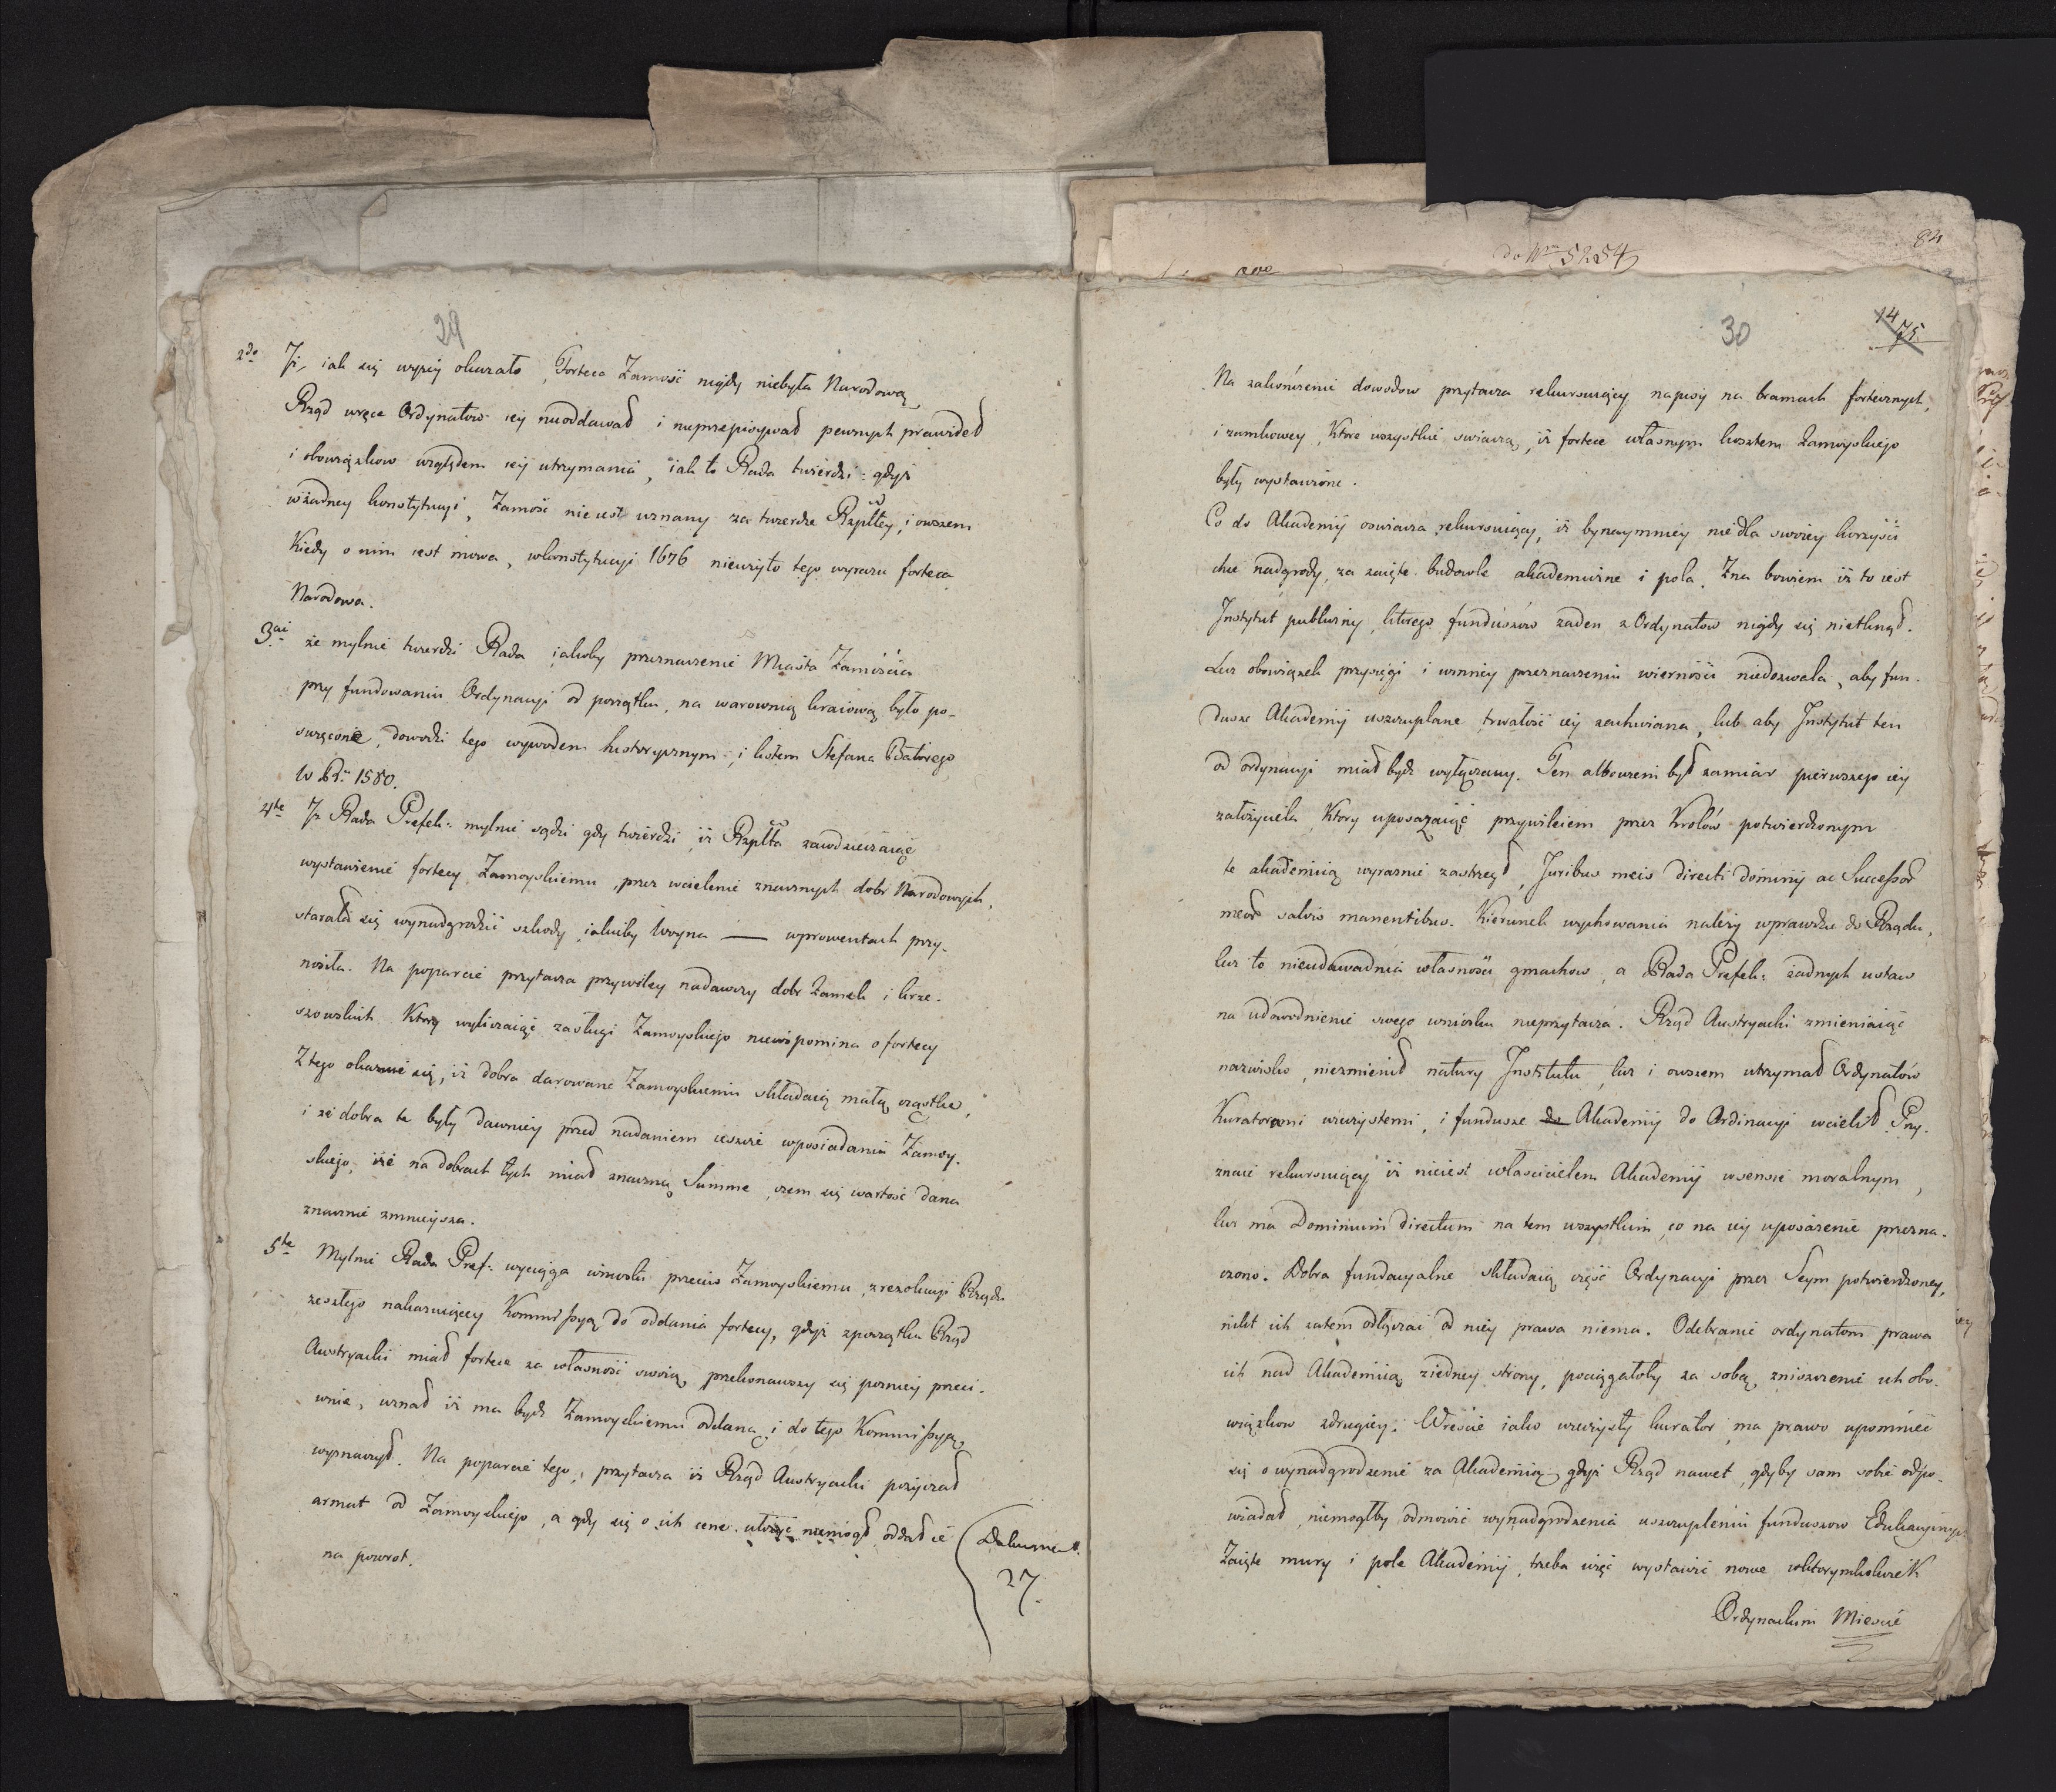 29
2do Iż iak się wyżey okazało, Forteca Zamość nigdy niebyła Narodową
Rząd wręce Ordynatow iey nieoddawał i nieprzepisywał pewnych prawideł
i obowiązkow względem iey utrzymania, iak to Rada twierdzi: gdyż
wżadney konstytucyi, Zamość nie iest uznany za twierdze Rzpltey, i owszem
Kiedy o nim iest mowa, wkonstytucyi 1676 nieużyto tego wyrazu forteca
Narodowa.
3cie że mylnie twierdzi Rada iakoby przeznaczenie Miasta Zamościa
przy fundowaniu Ordynacyi od początku, na warownią kraiową było po-
swięcone, dowodzi tego wywodem historycznym, i listem Stefana Batorego
w Rn 1580.
4te Iż Rada Prefek: mylnie sądzi gdy twierdzi iż Rzplta zawdzieczaiąc
wystawienie fortecy Zamoyskiemu, przez wcielenie znacznych dobr Narodowych,
starała się wynadgrodzić szkody iakieby woyna — wprowentach przy-
nosiła. Na poparcie przytacza przywiley nadawczy dobr Zamek i krze-
szowskich Ktory wyliczaiąc zasługi Zamoyskiego niewspomina o fortecy
Ztego okazuie się, iż dobra darowane Zamoyskiemu składaią małą cząstkę,
i że dobra te były dawniey przed nadaniem ieszcze wposiadaniu Zamoy-
skiego, iże na dobrach tych miał znaczną Summe, czem się wartość dana
znacznie zmnieysza.
5te Mylnie Rada Pref: wyciąga wnioski przeciw Zamoyskiemu, zrezolucyi Rządu
zeszłego nakazuiącey Kommissyą do oddania fortecy, gdyż zpoczątku Rząd
Austryacki miał fortece za własność swoią, przekonawszy się pozniey przeci-
wnie, uznał iż ma bydź Zamoyskiemu oddana i do tego Kommissyą
wyznaczył. Na poparcie tego, przytacza iż Rząd Austryacki pożyczał
armat od Zamoyskiego, a gdy się o ich cene niemogł oddał ie
na powrot.
Dokument.
27.
do Nru 5254
84
30
14
75
Na zakończenie dowodow przytacza rekursuiący napisy na bramach fortecznych,
i zamkowey, Ktore wszystkie swiadczą, iż fortece własnym kosztem Zamoyskiego
były wystawione.
Co do Akademij oswiadcza rekursuiący, iż bynaymniey niedla swoiey korzyści
chce nadgrody, za zaięte budowle akademiczne i pola. Zna bowiem iż to iest
Instytut publiczny, ktorego funduszow zaden z Ordynatow nigdy się nietknął.
Lecz obowiązek przysięgi i winney przeznaczeniu wierności niedozwala, aby fun-
dusze Akademij uszczuplane trwałość iey zachwiana, lub aby Instytut ten
od ordynacyi miał bydź wyłączony. Ten albowiem był zamiar pierwszego iey
założyciela Ktory uposażaiąc przywileiem przez Krolów potwierdzonym
te akademią wyraznie zastrzegł, Juribus meis directi dominij ac Successor
meor salvis manentibus. Kierunek wychowania należy wprawdzie do Rządu,
lecz to nieudawadnia własności gmachow, a Rada Prefek: żadnych ustaw
na udowodnienie swego wniosku nieprzytacza. Rząd Austryacki zmieniaiąc
nazwisko, niezmienił natury Institutu, lecz i owszem utrzymał Ordynatów
Kuratorami wieczystemi, i fundusze do Akademij do Ordinacyi wcielił. Przy-
znaie rekursuiący iż nieiest właścicielem Akademij wsensie moralnym,
lecz ma Dominium directum na tem wszystkiem, co na iey uposażenie przezna-
czono. Dobra fundacyalne składaią część Ordynacyi przez Seym potwierdzoney,
nikt ich zatem odłączać od niey prawa niema. Odebranie ordynatom prawa
ich nad Akademią ziedney strony, pociągałoby za sobą zniszczenie ich obo-
wiązkow zdrugiey. Wreście iako wieczysty kurator, ma prawo upomnieć
się o wynadgrodzenie za Akademią gdyż Rząd nawet, gdyby sam sobie odpo-
wiadał, niemogłby odmowić wynadgrodzenia uszczupleniu funduszow Edukacyinych
Zaięte mury i pola Akademij, trzeba więc wystawić nowe wktorymkolwiek
Ordynackim Mieście